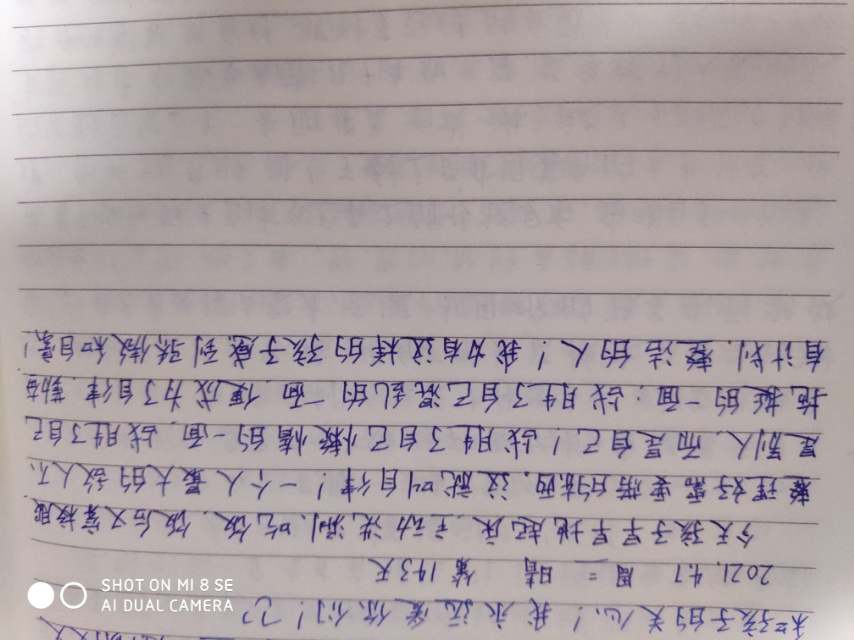 和孩子的关心！我永远爱你们！
2021.4.7 周三 晴 第143天
今天孩子早早地起床.主动洗漱.吃饭.饭后又穿校服
整理好需要带的东西.这就叫自律！一个人最大的敌人不
是别人.而是自己！战胜了自己懒惰的一面.战胜了自己
拖延的一面；战胜了自己混乱的一面.便成为了自律.勤奋
有计划.整洁的人！我为有这样的孩子感到骄傲和自豪！
SHOT ON MI 8 SE
AI DUAL CAMERA